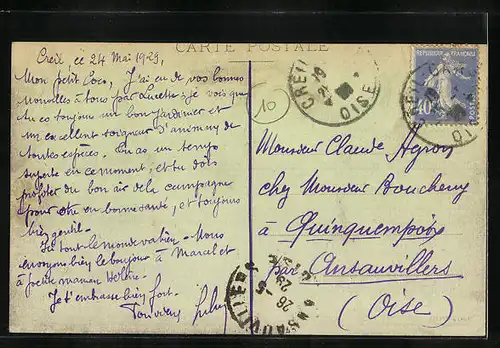 CARTE POSTALE
Creil, ce 24 Mai 1929,
Mon petit Coco, J'ai eu de vos bonnes
nouvelles à tous par Lucette. Je vois que
tu es toujours un bon jardinier et
un excellent soigneur d'animaux de
toutes espèces. Tu as un temps
superbe en ce moment, et tu dois
profiter du bon air de la campagne
pour être en bonne santé, et toujours
bien gentil.
Ici tout le monde va bien. Nous
envoyons bien le bonjour à Marcel et
à petite maman Hélène.
Je t'embrasse bien fort.
Ton vieux
10
CREIL
OISE
REPUBLIQUE FRANÇAISE
40
CREIL
OISE
Monsieur Claude Agron
chez Monsieur Boucheny
à Quinquempoix
par Ansauvillers
(Oise)
26